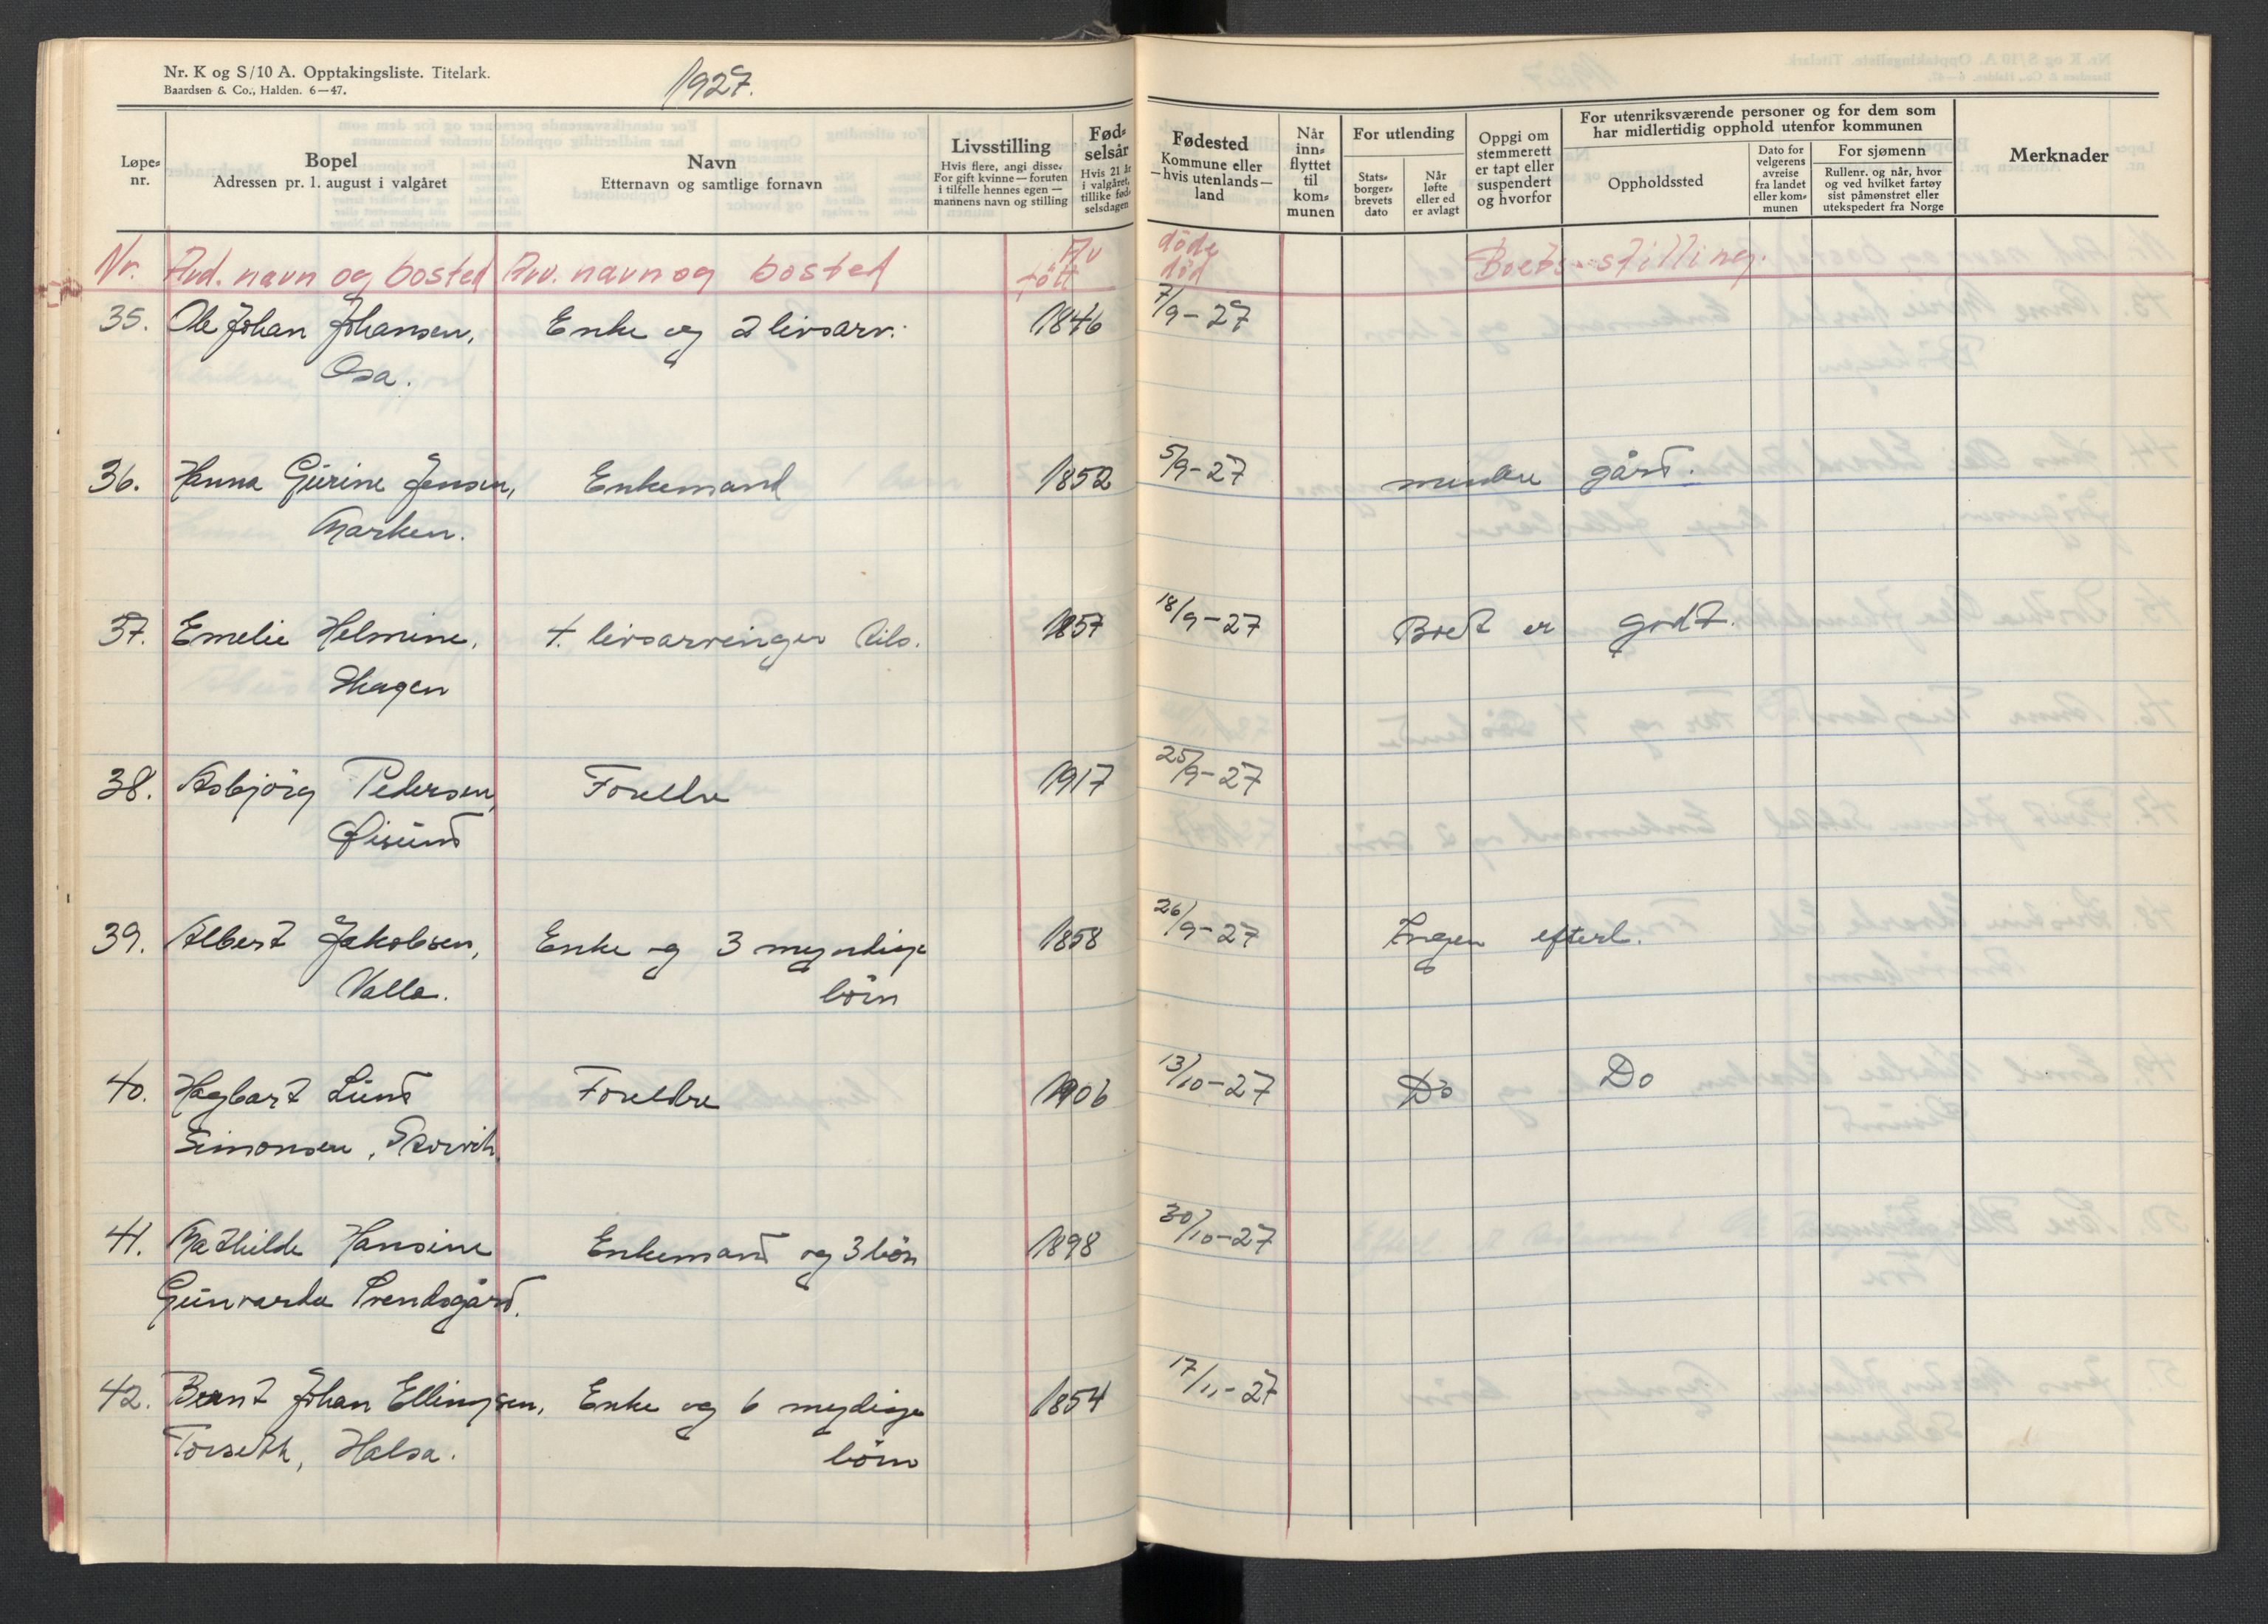 Nr. K og S/10 A. Opptakingsliste. Titelark.
Baardsen & Co., Halden. 6—47.
1927.
Løpe=
nr.
Bopel
Adressen pr. 1. august i valgåret
Navn
Etternavn og samtlige fornavn
Livsstilling
Hvis flere, angi disse.
For gift kvinne — foruten
i tilfelle hennes egen —
mannens navn og stilling
Fød=
selsår
Hvis 21 år
i valgåret,
tillike fød=
selsdagen
Fødested
Kommune eller
—hvis utenlands—
land
Når
inn=
flyttet
til
kom=
munen
For utlending
Stats=
borger=
brevets
dato
Når
løfte
eller ed
er avlagt
Oppgi om
stemmerett
er tapt eller
suspendert
og hvorfor
For utenriksværende personer og for dem som
har midlertidig opphold utenfor kommunen
Oppholdssted
Dato for
velgerens
avreise
fra landet
eller kom=
munen
For sjømenn
Rullenr. og når, hvor
og ved hvilket fartøy
sist påmønstret eller
utekspedert fra Norge
Merknader
Nr. Avd. navn og bosted Arv. navn og bosted Av født døde død Boets stilling.
35. Ole Johan Johansen, Enke og 2 livsarv. 1846 7/9-27
Osa.
36. Hanna Gurine Jensen, Enkemand 1852 5/9-27 mindre gård.
Marken.
37. Emelie Helmine, 4. livsarvinger 1857 18/9-27 Boet er godt.
Hagen
38. Asbjörg Pedersen, Foreldre 1917 25/9-27
Øisund
39. Albert Jakobsen, Enke og 3 myndige 1858 26/9-27 Ingen efterl.
Valla. börn
40. Hagbart Lund Foreldre 1906 13/10-27 Do Do
Simonsen, Storvik.
41. Mathilde Hansine Enkemand og 3 börn 1898 30/10-27
Gunvarda Svendsgård.
42. Bernt Johan Ellingsen, Enke og 6 mydige 1854 17/11-27
Torseth, Halsa. börn